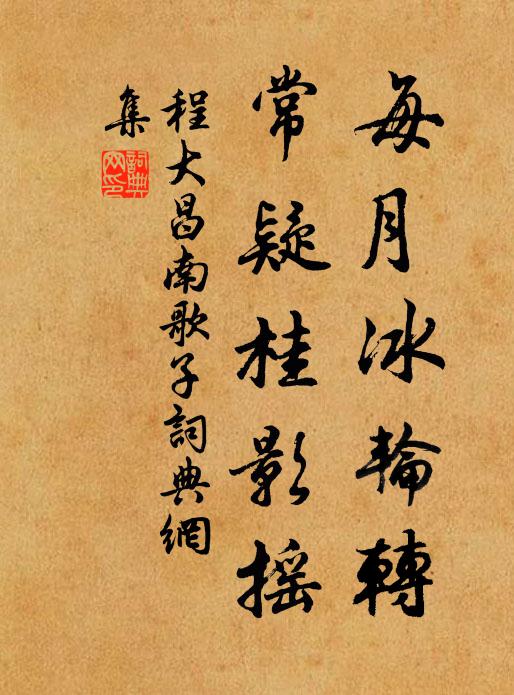 每月冰輪轉
常疑桂影搖
程大昌南歌子詞典網
集
詞典
网印